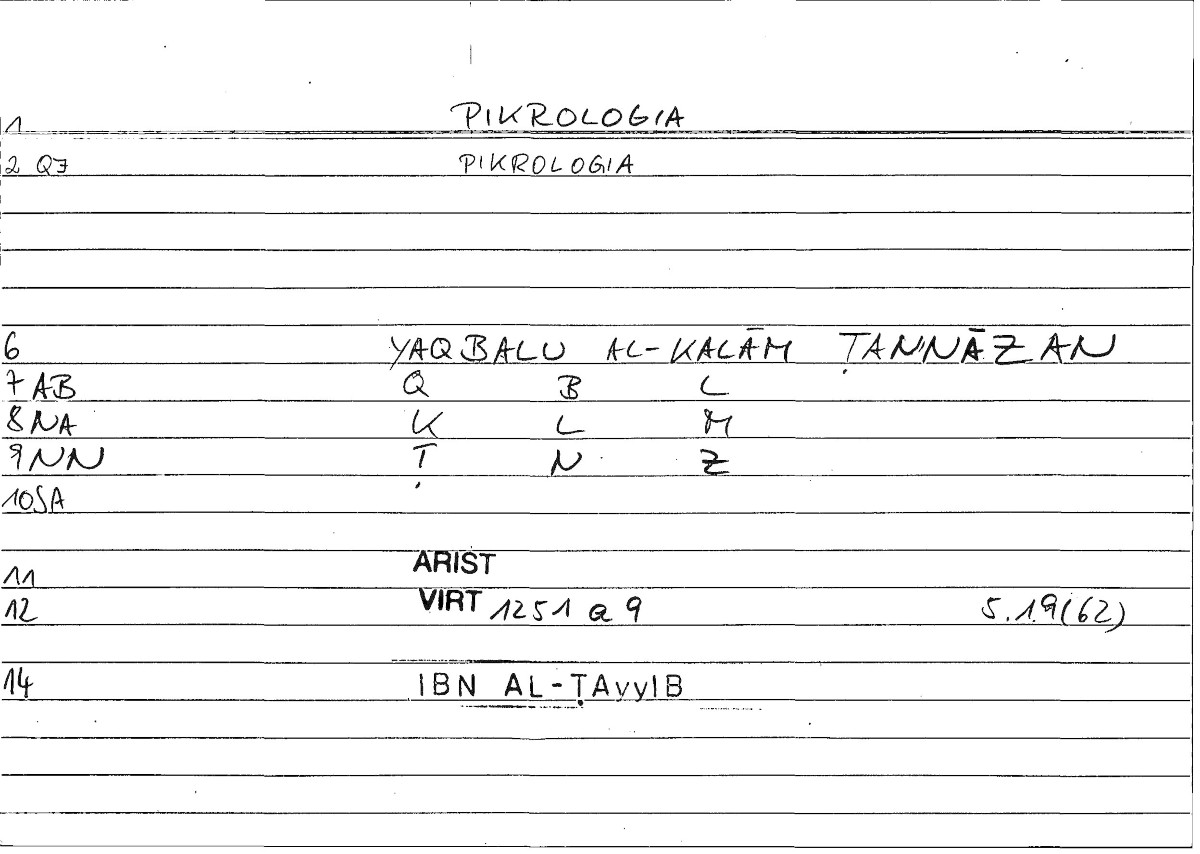 1 PIKROLOGIA
2 QJ PIKROLOGIA
6 YAQBALU AL-KALĀM ṬANNĀZAN
7 AB Q B L
8 NA K L M
9 NN Ṭ N Z
10 SA
11 ARIST
12 VIRT 1251 a 9 5.19(62)
14 IBN AL-ṬAyyIB